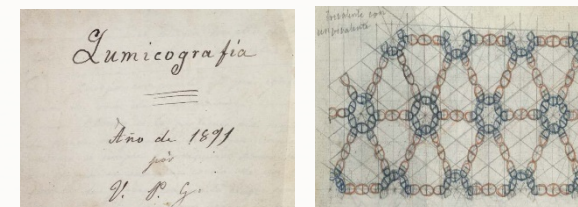 Lumicografía
Año de 1891
por
V. P. G.